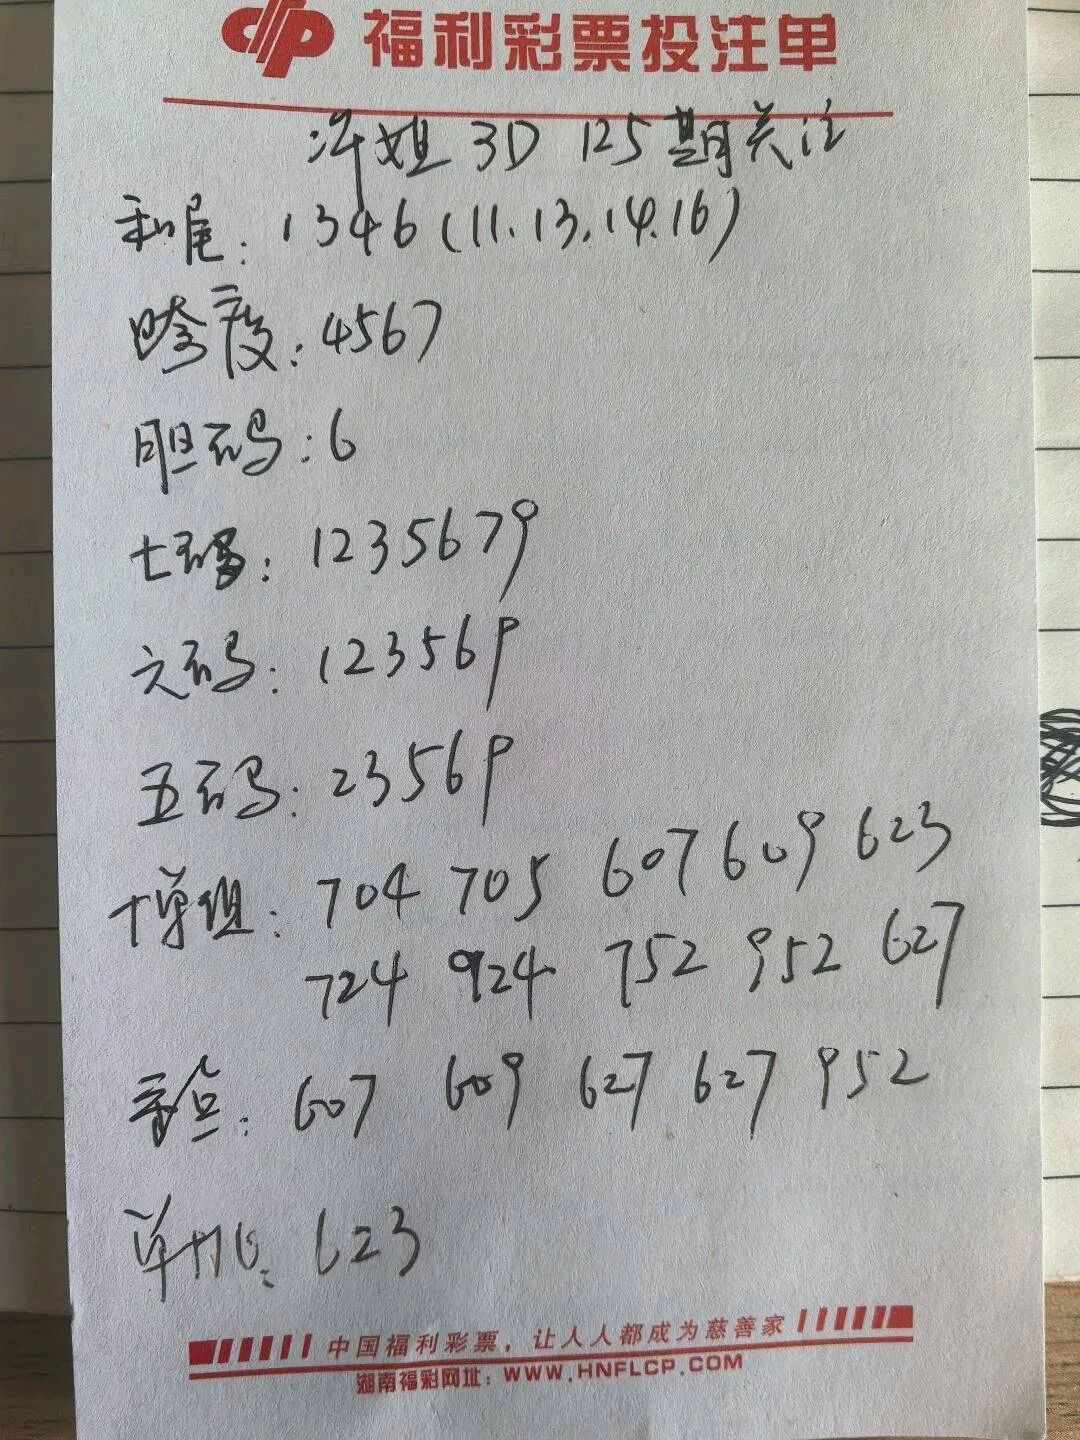 福利彩票投注单
姐 3D 125期关注
和尾: 1346(11.13.14.16)
跨度: 4567
胆码: 6
七码: 1235679
六码: 123569
五码: 23569
十单组: 704 705 607 609 623
724 924 752 952 627
607 609 627 627 952
单挑: 623
中国福利彩票，让人人都成为慈善家
湖南福彩网址：WWW.HNFLCP.COM